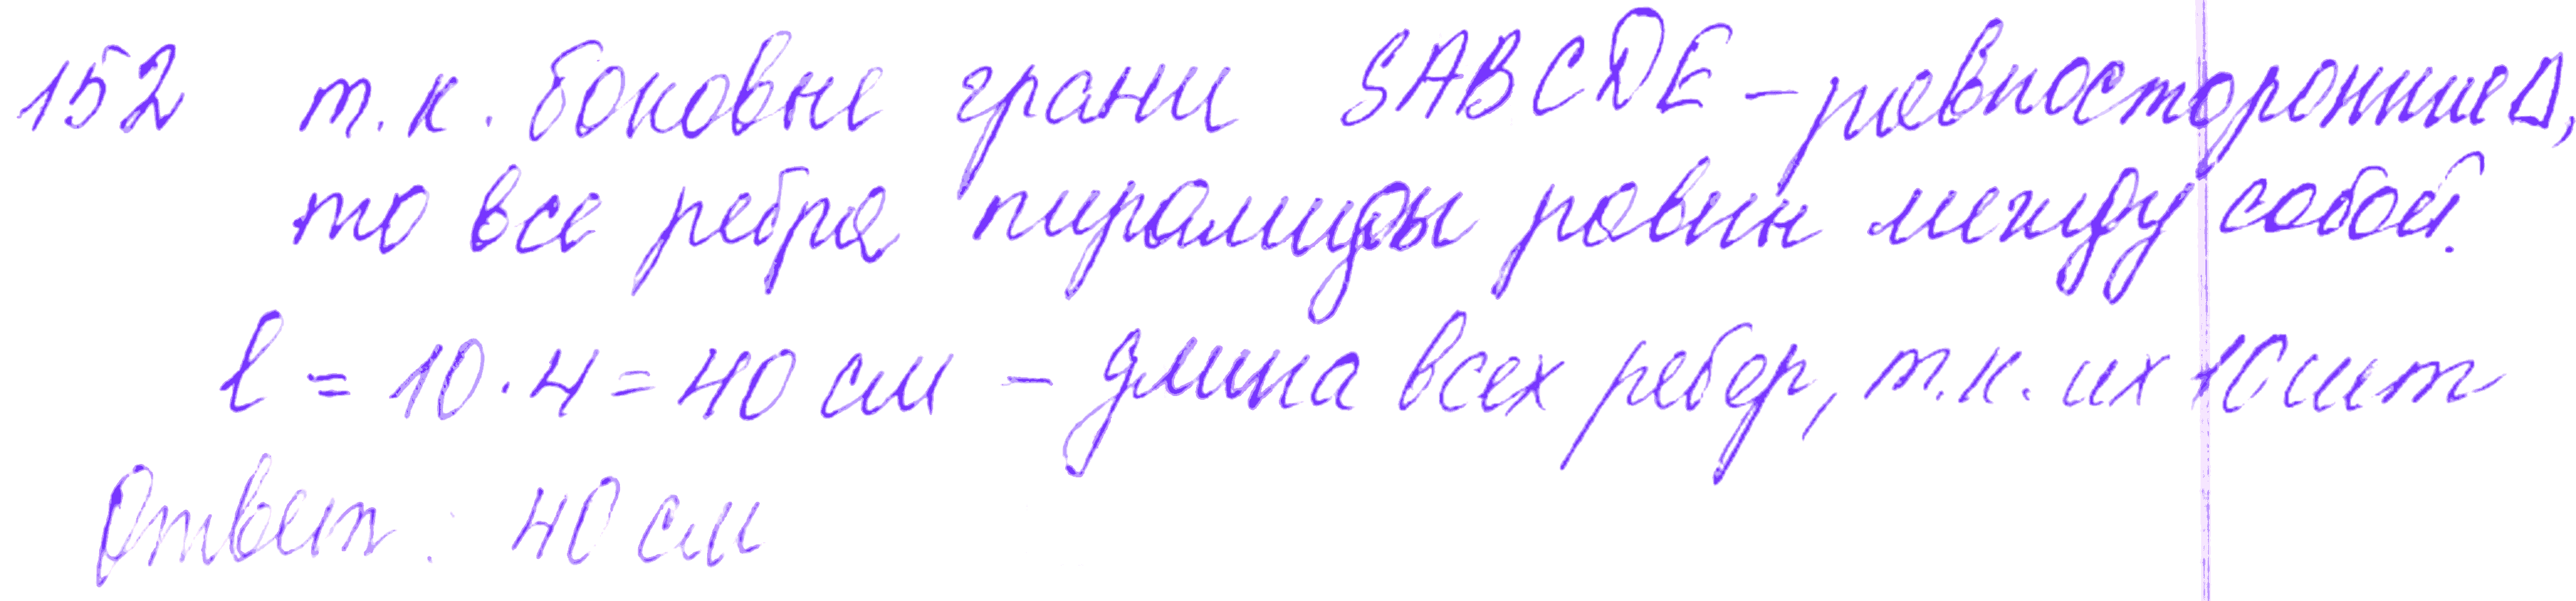 152 т.к. боковые грани SABCDE - равносторонние Δ,
то все ребра пирамиды равны между собой.
l = 10 · 4 = 40 см - длина всех ребер, т.к. их 10 шт
Ответ: 40 см